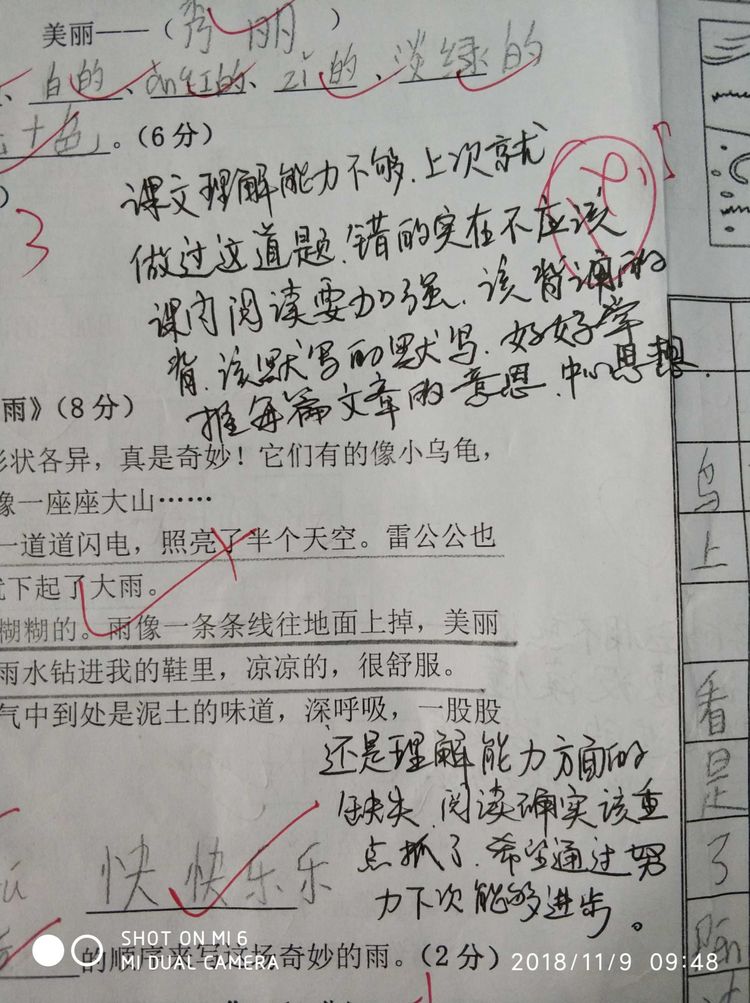 美丽——(秀丽)
、白的、fěn红的、zǐ的、淡绿的
十色」。(6分)
课文理解能力不够,上次就
3
做过这道题,错的实在不应该
课内阅读要加强,该背诵的
背,该默写的默写,好好掌
握每篇文章的意思,中心思想.
雨》(8分)
形状各异,真是奇妙!它们有的像小乌龟,
像一座座大山……
一道道闪电,照亮了半个天空。雷公公也
就下起了大雨。
糊糊的。雨像一条条线往地面上掉,美丽
雨水钻进我的鞋里,凉凉的,很舒服。
气中到处是泥土的味道,深呼吸,一股股
还是理解能力方面的
缺失,阅读确实该重
点抓了,希望通过努
力下次能够进步。
快快乐乐
的顺序来写这场奇妙的雨。(2分)
乌
上
看
是
了
SHOT ON MI 6
MI DUAL CAMERA
2018/11/9 09:48